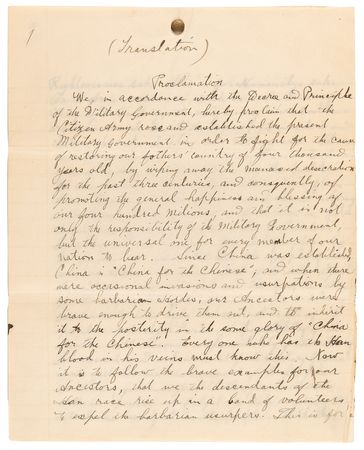 1
(Translation)
Proclamation
We, in accordance with the Decree and Principle
of the Military Government, hereby proclaim that the
Citizen Army rose and established the present
Military Government in order to fight for the cause
of restoring our fathers' country of four thousand
years old, by wiping away the menaced desecration
for the past three centuries, and consequently, of
promoting the general happiness and blessing of
our four hundred millions, and that it is not
only the responsibility of the Military Government,
but the universal one for every member of our
nation to bear. Since China was established
China is "China for the Chinese", and when there
were occasional invasions and usurpations by
some barbarian hordes, our Ancestors were
brave enough to drive them out, and to inherit
it to the posterity in the same glory of "China
for the Chinese". Every one who has the Han
blood in his veins must know this. Now
it is to follow the brave examples for our
Ancestors, that we the descendants of the
Han race rise up in a band of volunteers
to expel the barbarian usurpers. This is for